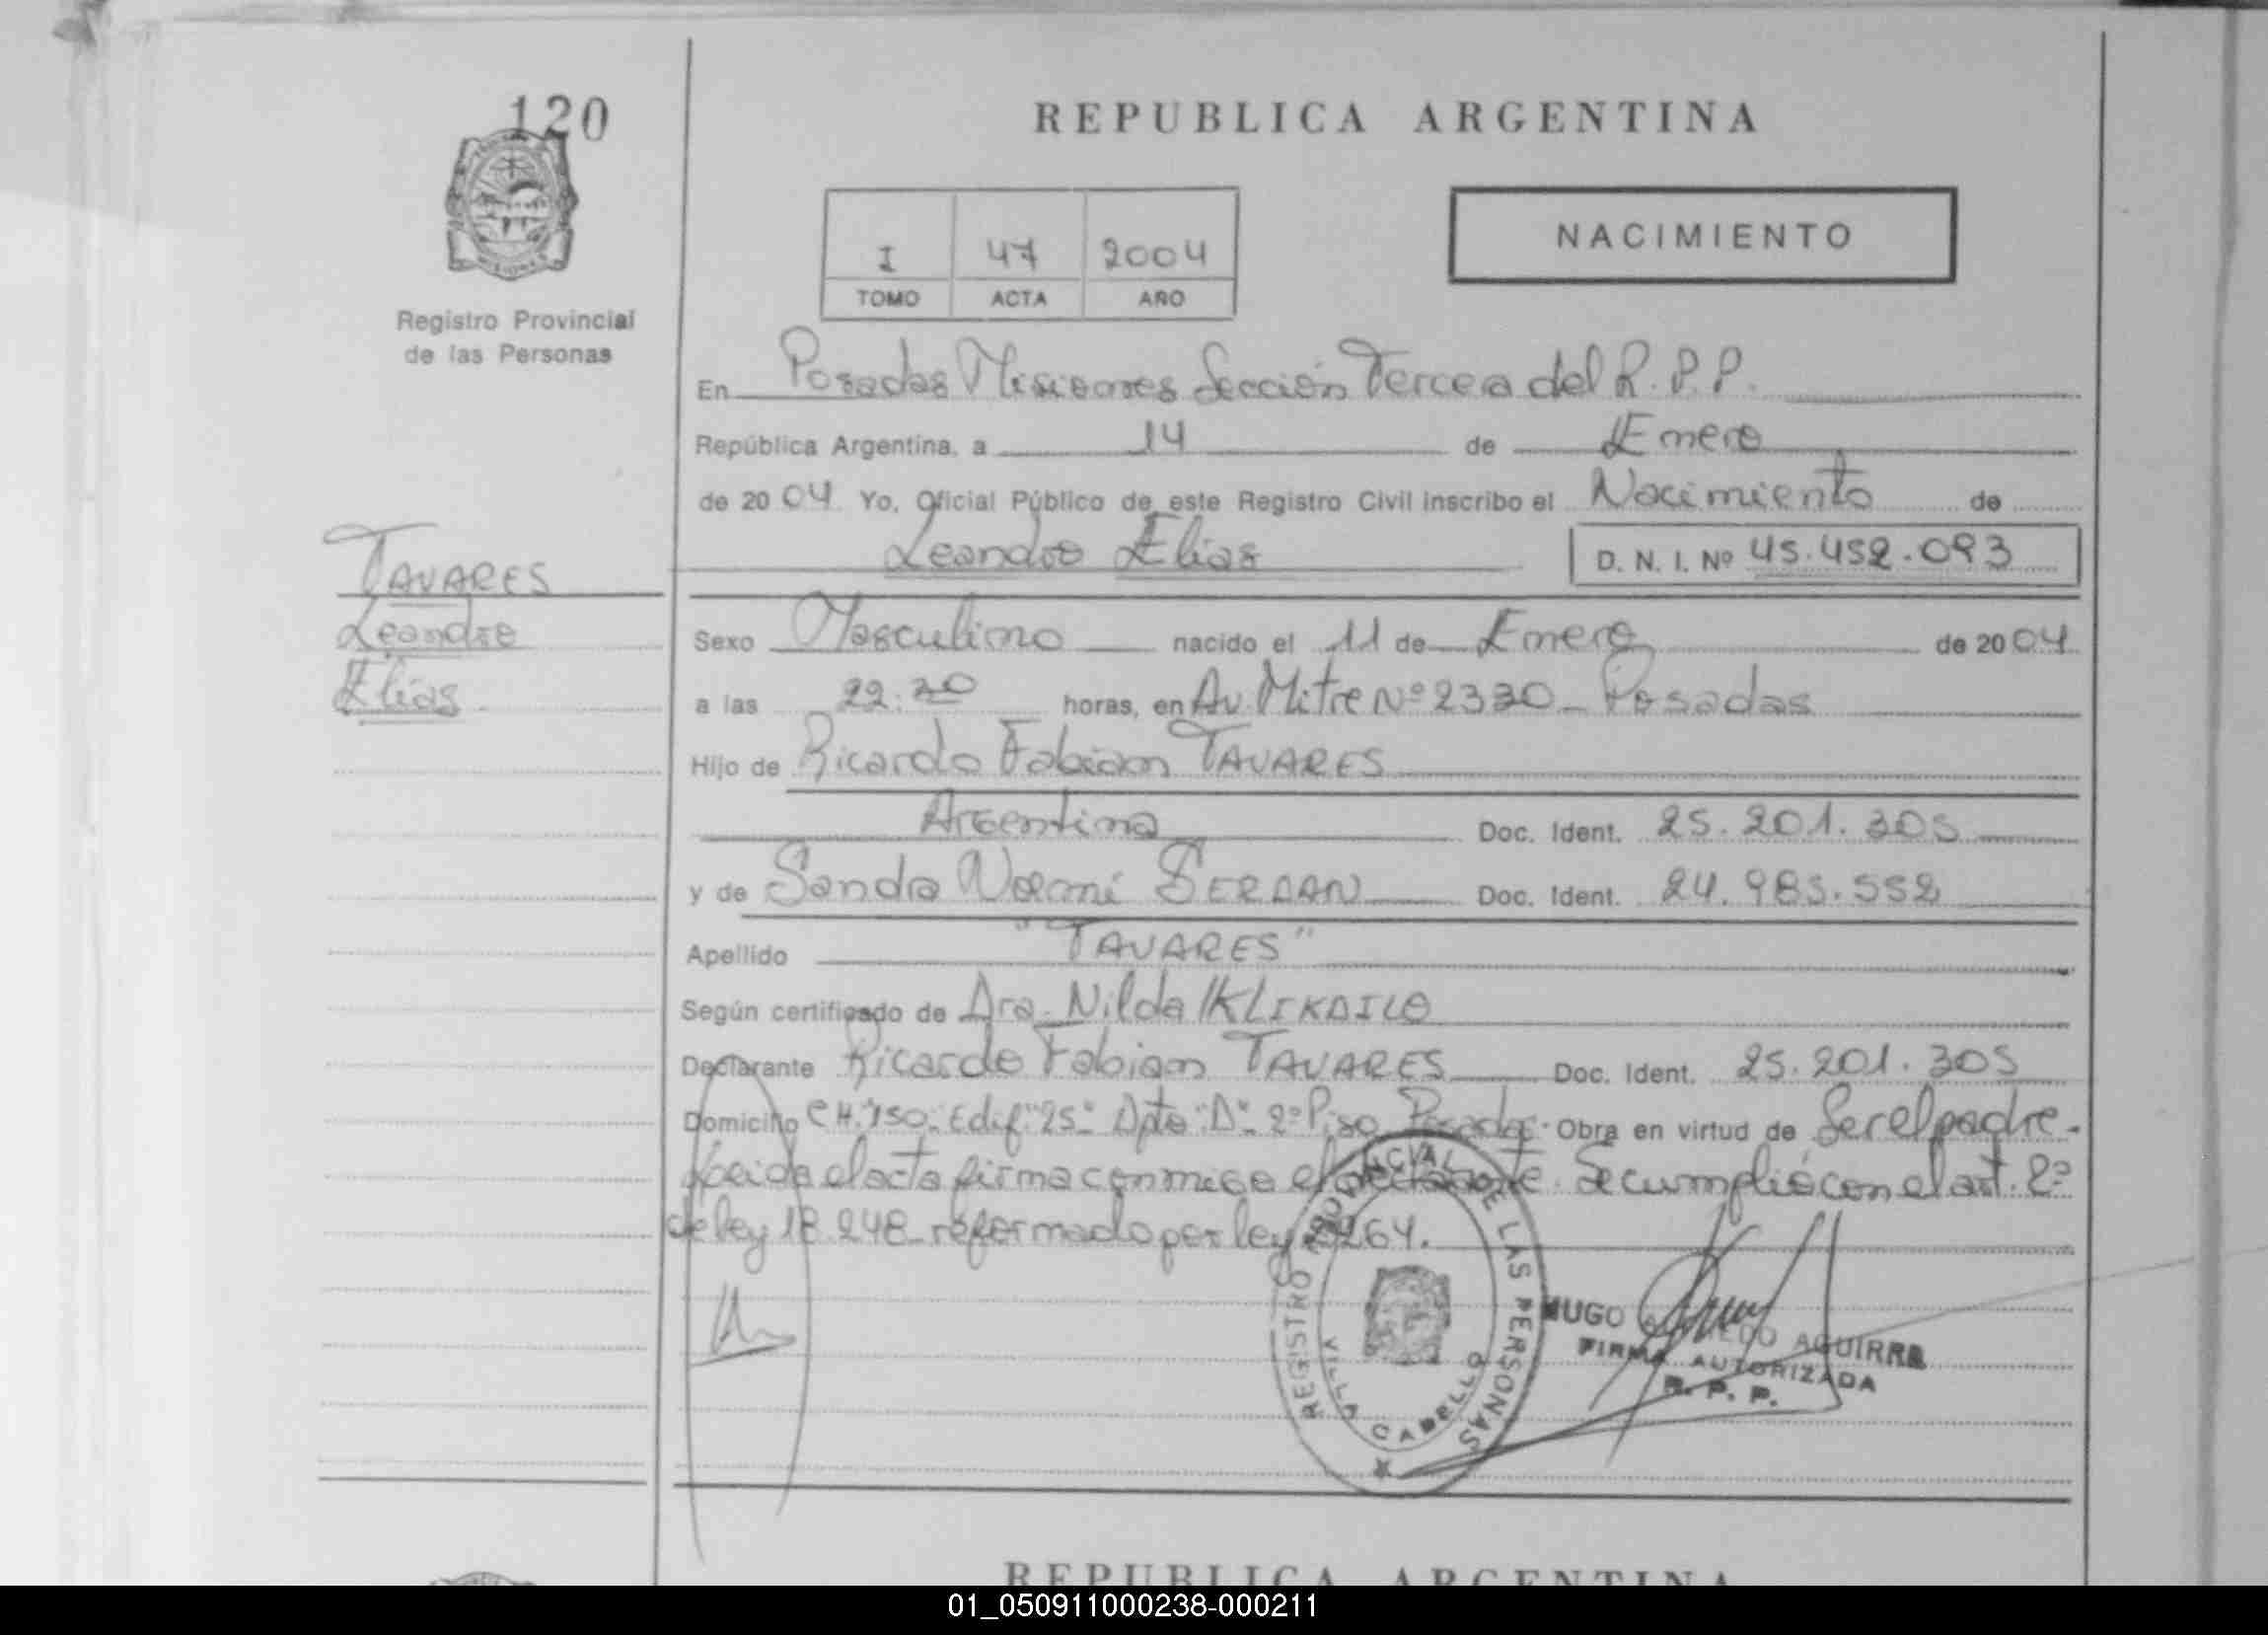 120
REPUBLICA ARGENTINA
I 47 2004
TOMO ACTA AÑO
NACIMIENTO
Registro Provincial
de las Personas
En Posadas Misiones Sección Tercera del R.P.P.
República Argentina, a 14 de Enero
de 20 04 Yo, Oficial Público de este Registro Civil inscribo el Nacimiento de
Leandro Elias D. N. I. Nº 45.452.093
TAVARES
Leandro
Elias
Sexo Masculino nacido el 11 de Enero de 20 04
a las 22: horas, en Av. Mitre Nº 2330 - Posadas
Hijo de Ricardo Fabian TAVARES
Argentina Doc. Ident. 25.201.305
y de Sandra Noemí Doc. Ident. 24.985.552
Apellido "TAVARES"
Según certificado de Dra. Nilda
Declarante Ricardo Fabian TAVARES Doc. Ident. 25.201.305
Domicilio CH. 150. Edif. "25" Dpto "D" 2º Piso Posadas. Obra en virtud de Ser el padre.
el acta firma conmigo el Se cumplió con el art. 2º
de ley 18.248 reformado por ley 264.
REGISTRO PROVINCIAL DE LAS PERSONAS
VILLA CABELLO
HUGO ALFREDO AGUIRRE
FIRMA AUTORIZADA
R. P. P.
REPUBLICA ARGENTINA
01_050911000238-000211